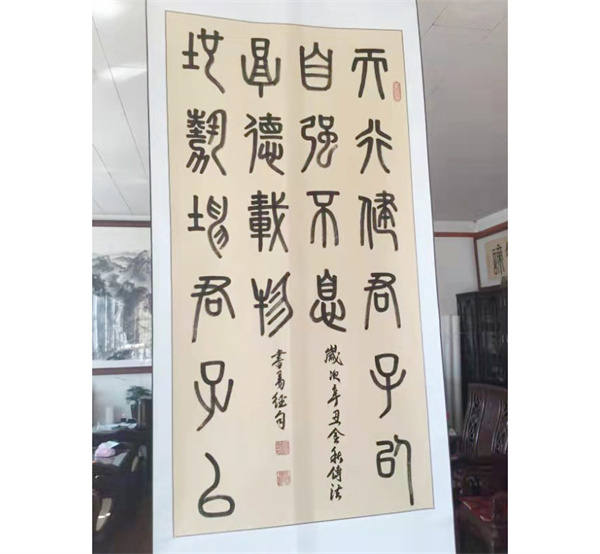 天行健君子以
自强不息
地勢坤君子以
厚德載物
歲次辛丑金秋傳法
書易經句